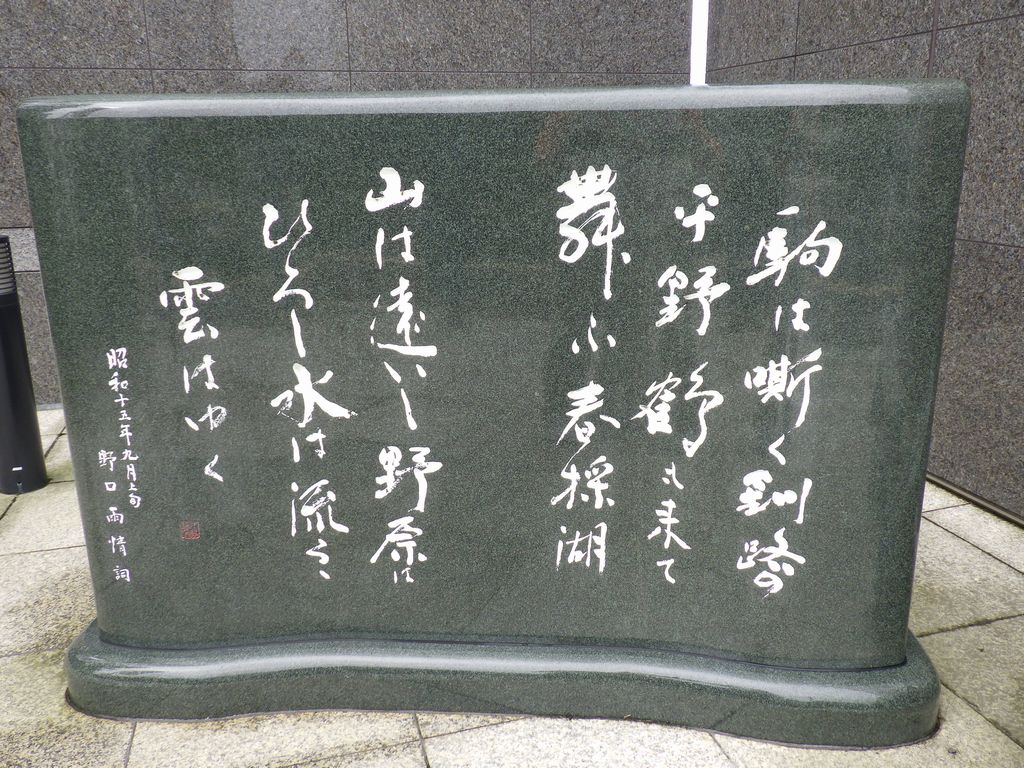 駒は嘶く釧路の
平野鶴も来て
舞ふ春採湖
山は遠いし野原は
ひろし水は流るゝ
雲はゆく
昭和十五年九月上旬
野口雨情詞